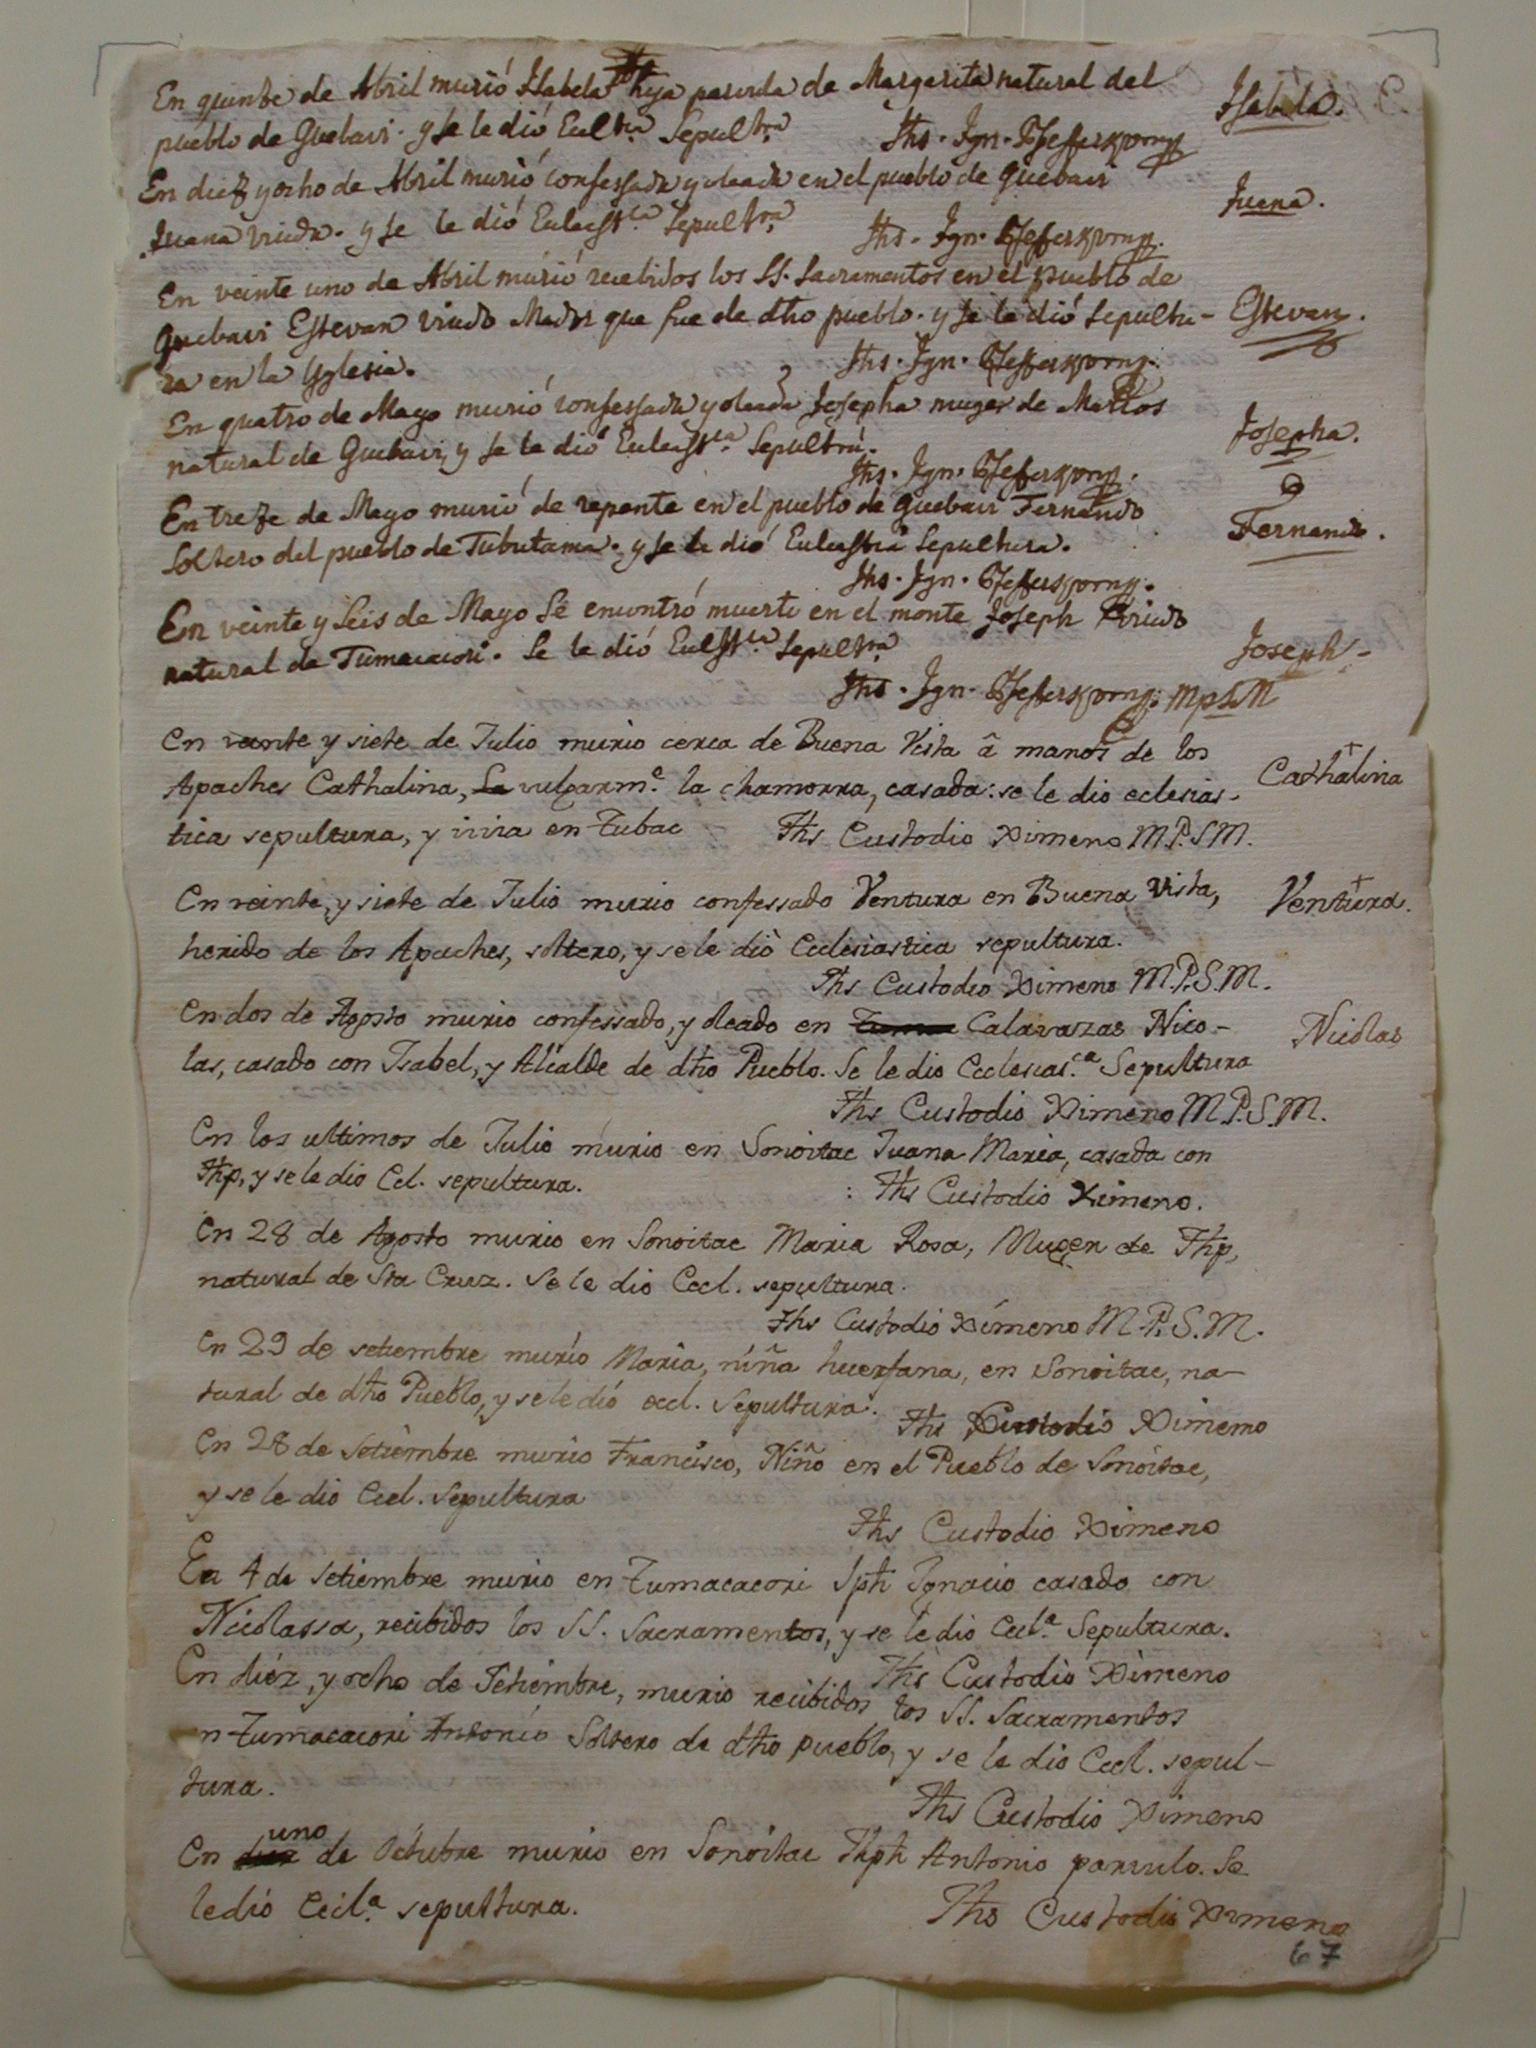 En quinze de Abril murió Isabela hija parvula de Margarita natural del
pueblo de Guebavi. y se le dió Ecltca. Sepultra.
Isabela.
Jhs. Ign. Pfefferkorn
En diez y ocho de Abril murió confessada y oleada en el pueblo de Guebavi
Juana.
Juana viuda. y se le dió Eclesstca. Sepultra.
Jhs. Ign. Pfefferkorn.
En veinte uno de Abril murió recebidos los SS. Sacramentos en el pueblo de
Guebavi Estevan viudo Mador que fue de dho pueblo. y se le dió sepultu-
Estevan.
ra en la Yglesia.
Jhs. Ign. Pfefferkorn.
En quatro de Mayo murió confessada y oleada Josepha muger de
natural de Guebavi, y se le dió Eclesstca. Sepultra.
Josepha.
Jhs. Ign. Pfefferkorn.
En treze de Mayo murió de repente en el pueblo de Guebavi Fernando
Soltero del pueblo de Tubutama. y se le dió Eclesstca Sepultura.
Fernando.
Jhs. Ign. Pfefferkorn.
En veinte y seis de Mayo se encontró muerto en el monte Joseph viudo
natural de Tumacacori. Se le dió Eclsstca. Sepultra
Joseph
Jhs. Ign. Pfefferkorn. MpSM
En veinte y siete de Julio murio cerca de Buena Vista â manos de los
Apaches Cathalina, La vulgarme. la chamorra, casada: se le dio eclesias-
Cathalina
tica sepultura, y vivia en Tubac Jhs Custodio Ximeno M.P.S.M.
En veinte, y siete de Julio murio confessado Ventura en Buena Vista,
Ventura.
herido de los Apaches, soltero, y se le diò Ecclesiastica sepultura.
Jhs Custodio Ximeno M.P.S.M.
En dos de Agosto murio confessado, y oleado en Calavazas Nico-
Nicolas
las, casado con Isabel, y Alcalde de dho Pueblo. Se le dio Ecclesias.ca Sepultura
Jhs Custodio Ximeno M.P.S.M.
En los ultimos de Julio murio en Sonoitac Juana Maria, casada con
Jhp, y se le dio Ecl. sepultura. : Jhs Custodio Ximeno.
En 28 de Agosto murio en Sonoitac Maria Rosa, Muger de Jhp,
natural de Sta Cruz. Se le dio Eccl. sepultura.
Jhs Custodio Ximeno M.P.S.M.
En 29 de setiembre murío Maria, niña huerfana, en Sonoitac, na-
tural de dho Pueblo, y se le dió eccl. Sepultura.
Jhs Custodio Ximeno
En 28 de Setiembre murio Francisco, Niño en el Pueblo de Sonoitac,
y se le dio Eccl. Sepultura
Jhs Custodio Ximeno
En 4 de Setiembre murio en Tumacacori Jph Ignacio casado con
Nicolassa, recibidos los SS. Sacramentos, y se le dio Ecl.a Sepultura.
Jhs Custodio Ximeno
En diez, y ocho de Setiembre, murio recibidos los SS. Sacramentos
en Tumacacori Antonio Soltero de dho pueblo, y se le dio Eccl. sepul-
tura.
Jhs Custodio Ximeno
En uno de Octubre murio en Sonoitac Jhph Antonio parvulo. Se
le dió Eccl.a sepultura.
Jhs Custodio Ximeno
67